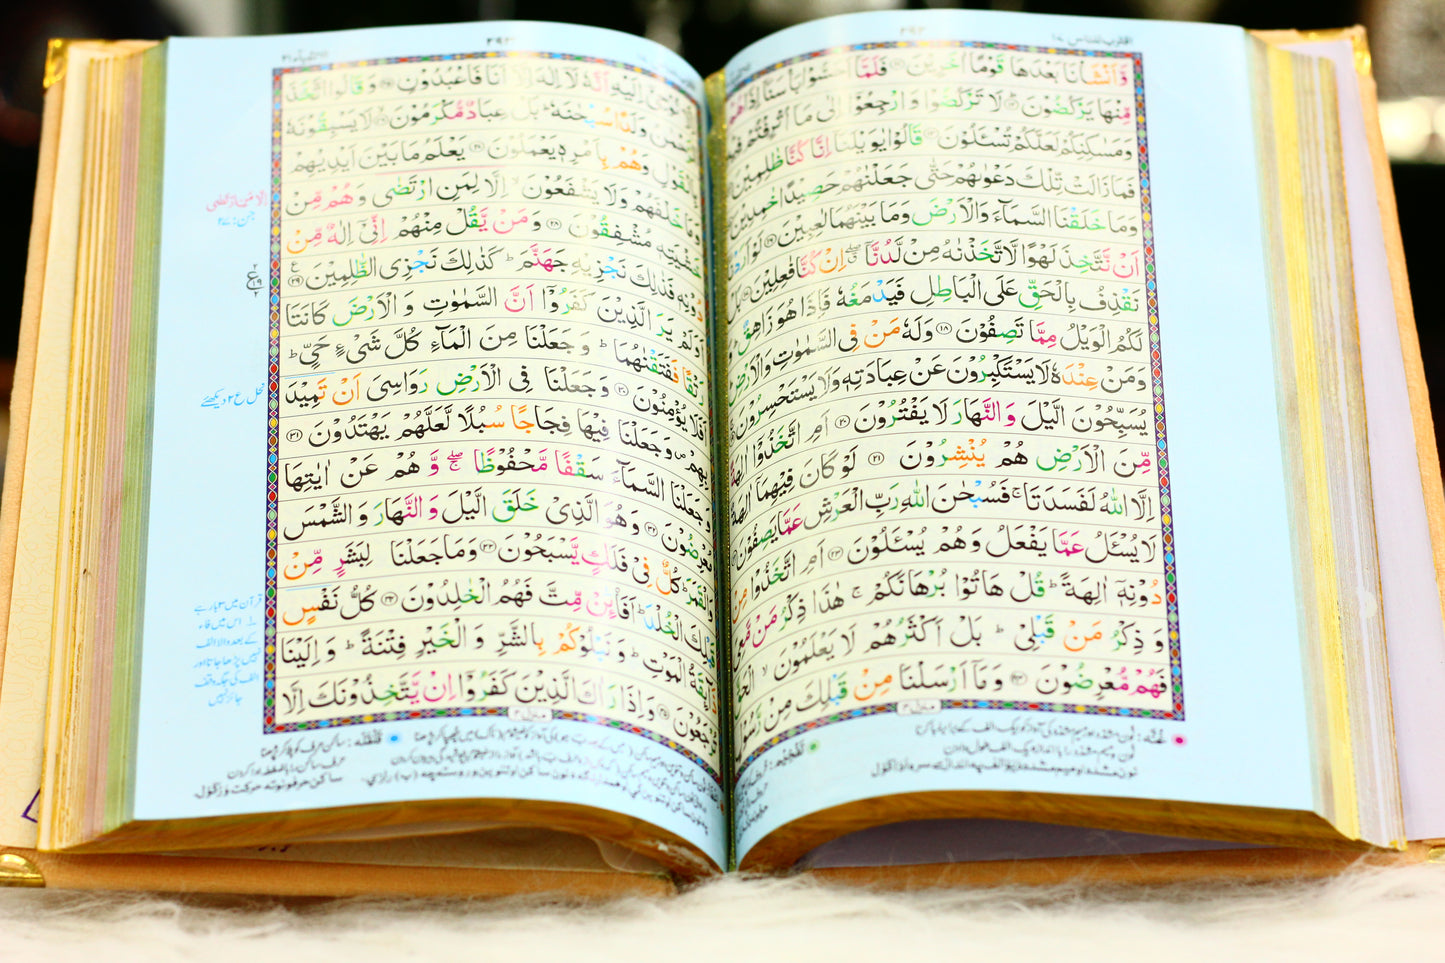 اقترب للناس ١٧
٣٩٣
وَّاَنْشَاْنَا بَعْدَهَا قَوْمًا اٰخَرِيْنَ ⑪ فَلَمَّآ اَحَسُّوْا بَاْسَنَآ اِذَا هُمْ
مِّنْهَا يَرْكُضُوْنَ ⑫ لَا تَرْكُضُوْا وَارْجِعُوْٓا اِلٰى مَآ اُتْرِفْتُمْ فِيْهِ
وَمَسٰكِنِكُمْ لَعَلَّكُمْ تُسْـَٔلُوْنَ ⑬ قَالُوْا يٰوَيْلَنَآ اِنَّا كُنَّا ظٰلِمِيْنَ
فَمَا زَالَتْ تِّلْكَ دَعْوٰىهُمْ حَتّٰى جَعَلْنٰهُمْ حَصِيْدًا خٰمِدِيْنَ
وَمَا خَلَقْنَا السَّمَآءَ وَالْاَرْضَ وَمَا بَيْنَهُمَا لٰعِبِيْنَ ⑯ لَوْ اَرَدْنَآ
اَنْ نَّتَّخِذَ لَهْوًا لَّاتَّخَذْنٰهُ مِنْ لَّدُنَّآ ۖ اِنْ كُنَّا فٰعِلِيْنَ ⑰ بَلْ
نَقْذِفُ بِالْحَقِّ عَلَى الْبَاطِلِ فَيَدْمَغُهٗ فَاِذَا هُوَ زَاهِقٌ ؕ وَ
لَكُمُ الْوَيْلُ مِمَّا تَصِفُوْنَ ⑱ وَلَهٗ مَنْ فِى السَّمٰوٰتِ وَالْاَرْضِ
وَمَنْ عِنْدَهٗ لَا يَسْتَكْبِرُوْنَ عَنْ عِبَادَتِهٖ وَلَا يَسْتَحْسِرُوْنَ
يُسَبِّحُوْنَ الَّيْلَ وَالنَّهَارَ لَا يَفْتُرُوْنَ ⑳ اَمِ اتَّخَذُوْٓا اٰلِهَةً
مِّنَ الْاَرْضِ هُمْ يُنْشِرُوْنَ ㉑ لَوْ كَانَ فِيْهِمَآ اٰلِهَةٌ
اِلَّا اللّٰهُ لَفَسَدَتَا ۚ فَسُبْحٰنَ اللّٰهِ رَبِّ الْعَرْشِ عَمَّا يَصِفُوْنَ
لَا يُسْـَٔلُ عَمَّا يَفْعَلُ وَهُمْ يُسْـَٔلُوْنَ ㉓ اَمِ اتَّخَذُوْا مِنْ
دُوْنِهٖٓ اٰلِهَةً ؕ قُلْ هَاتُوْا بُرْهَانَكُمْ ۚ هٰذَا ذِكْرُ مَنْ مَّعِىَ
وَ ذِكْرُ مَنْ قَبْلِىْ ؕ بَلْ اَكْثَرُهُمْ لَا يَعْلَمُوْنَ ۙ الْحَقَّ
فَهُمْ مُّعْرِضُوْنَ ㉔ وَمَآ اَرْسَلْنَا مِنْ قَبْلِكَ مِنْ رَّسُوْلٍ
الانبيآء ٢١
نُوْحِىْٓ اِلَيْهِ اَنَّهٗ لَآ اِلٰهَ اِلَّآ اَنَا فَاعْبُدُوْنِ ㉕ وَ قَالُوا اتَّخَذَ
الرَّحْمٰنُ وَلَدًا سُبْحٰنَهٗ ؕ بَلْ عِبَادٌ مُّكْرَمُوْنَ ㉖ لَا يَسْبِقُوْنَهٗ
بِالْقَوْلِ وَهُمْ بِاَمْرِهٖ يَعْمَلُوْنَ ㉗ يَعْلَمُ مَا بَيْنَ اَيْدِيْهِمْ
وَمَا خَلْفَهُمْ وَلَا يَشْفَعُوْنَ ۙ اِلَّا لِمَنِ ارْتَضٰى وَهُمْ مِّنْ
خَشْيَتِهٖ مُشْفِقُوْنَ ㉘ وَمَنْ يَّقُلْ مِنْهُمْ اِنِّىْٓ اِلٰهٌ مِّنْ
دُوْنِهٖ فَذٰلِكَ نَجْزِيْهِ جَهَنَّمَ ؕ كَذٰلِكَ نَجْزِى الظّٰلِمِيْنَ ㉙
اَوَلَمْ يَرَ الَّذِيْنَ كَفَرُوْٓا اَنَّ السَّمٰوٰتِ وَالْاَرْضَ كَانَتَا
رَتْقًا فَفَتَقْنٰهُمَا ؕ وَجَعَلْنَا مِنَ الْمَآءِ كُلَّ شَىْءٍ حَىٍّ ؕ
اَفَلَا يُؤْمِنُوْنَ ㉚ وَجَعَلْنَا فِى الْاَرْضِ رَوَاسِىَ اَنْ تَمِيْدَ
بِهِمْ وَجَعَلْنَا فِيْهَا فِجَاجًا سُبُلًا لَّعَلَّهُمْ يَهْتَدُوْنَ ㉛
وَجَعَلْنَا السَّمَآءَ سَقْفًا مَّحْفُوْظًا ۖ وَّهُمْ عَنْ اٰيٰتِهَا
مُعْرِضُوْنَ ㉜ وَهُوَ الَّذِىْ خَلَقَ الَّيْلَ وَالنَّهَارَ وَالشَّمْسَ
وَالْقَمَرَ ؕ كُلٌّ فِىْ فَلَكٍ يَّسْبَحُوْنَ ㉝ وَمَا جَعَلْنَا لِبَشَرٍ مِّنْ
قَبْلِكَ الْخُلْدَ ؕ اَفَا۟ئِنْ مِّتَّ فَهُمُ الْخٰلِدُوْنَ ㉞ كُلُّ نَفْسٍ
ذَآئِقَةُ الْمَوْتِ ؕ وَنَبْلُوْكُمْ بِالشَّرِّ وَالْخَيْرِ فِتْنَةً ؕ وَاِلَيْنَا
تُرْجَعُوْنَ ㉟ وَاِذَا رَاٰكَ الَّذِيْنَ كَفَرُوْٓا اِنْ يَّتَّخِذُوْنَكَ اِلَّا
منزل ٤